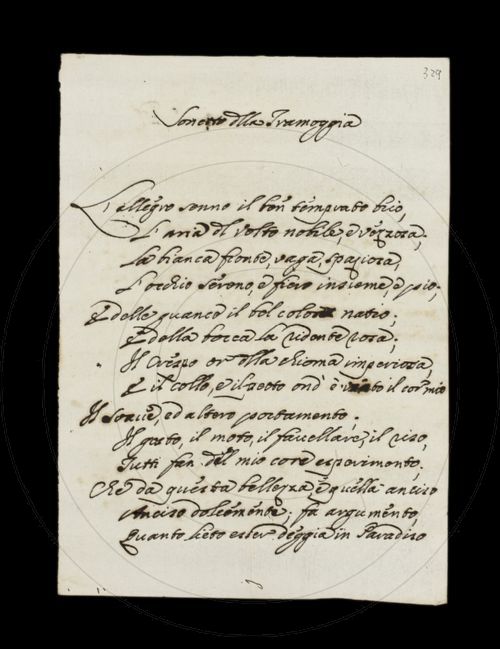 329
Sonetto dlla Tramoggia
L'allegro senno il ben temprato brio,
L'aria dl volto nobile, e vezzosa,
La bianca fronte, vaga, spaziosa,
L'occhio sereno, e fiero insieme, e pio;
E delle guance il bel colore natio;
E della bocca la ridente rosa;
Il Crespo or dlla chioma imperiosa,
E il collo, e il petto ond' è il cor mio
Il soave, ed altero portamento,
Il gesto, il moto, il favellare, il riso,
Tutti fan dl mio core esperimento,
Che da questa bellezza, e quella anciso
Anciso dolcemente, fa argumento,
Quanto lieto esser deggia in Paradiso